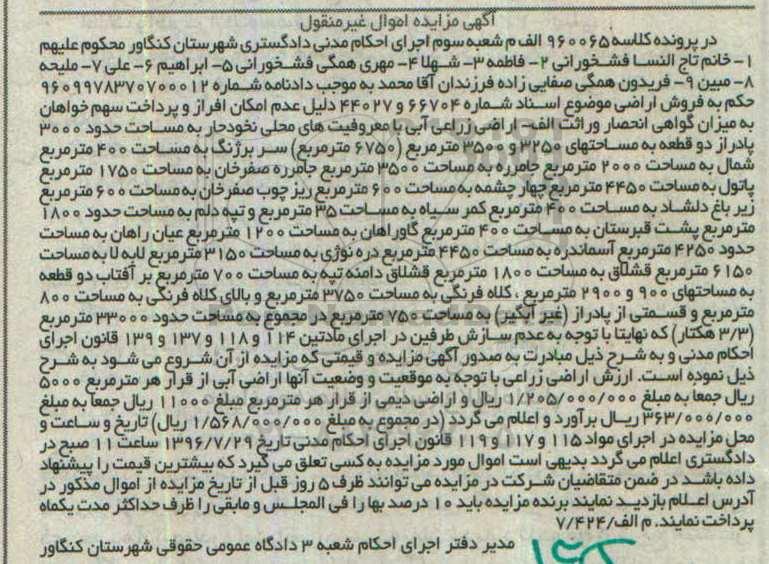 آگهی مزایده اموال غیرمنقول
در پرونده کلاسه ۹۶۰۰۶۵ الف م شعبه سوم اجرای احکام مدنی دادگستری شهرستان کنگاور محکوم علیهم
۱- خانم تاج النسا فشخورانی ۲- فاطمه ۳- شهلا ۴- مهری همگی فشخورانی ۵- ابراهیم ۶- علی ۷- ملیحه
۸- مبین ۹- فریدون همگی صفایی زاده فرزندان آقا محمد به موجب دادنامه شماره ۹۶۰۹۹۷۸۳۷۰۷۰۰۰۱۲
حکم به فروش اراضی موضوع اسناد شماره ۶۶۷۰۴ و ۴۴۰۲۷ دلیل عدم امکان افراز و پرداخت سهم خواهان
به میزان گواهی انحصار وراثت الف- اراضی زراعی آبی با معروفیت های محلی نخودجار به مساحت حدود ۳۰۰۰
پادراز دو قطعه به مساحتهای ۳۲۵۰ و ۳۵۰۰ مترمربع (۶۷۵۰ مترمربع) سر برژنگ به مساحت ۴۰۰ مترمربع
شمال به مساحت ۲۰۰۰ مترمربع جامرزه به مساحت ۳۵۰۰ مترمربع جامرزه صفرخان به مساحت ۱۷۵۰ مترمربع
پاتول به مساحت ۴۴۵۰ مترمربع چهار چشمه به مساحت ۶۰۰ مترمربع ریز چوب صفرخان به مساحت ۶۰۰ مترمربع
زیر باغ دلشاد به مساحت ۴۰۰ مترمربع کمر سیاه به مساحت ۳۵ مترمربع و تپه دلم به مساحت حدود ۱۸۰۰
مترمربع پشت قبرستان به مساحت ۴۰۰ مترمربع گاوراهان به مساحت ۱۲۰۰ مترمربع عیان راهان به مساحت
حدود ۴۲۵۰ مترمربع آسماندره به مساحت ۴۴۵۰ مترمربع دره نوژی به مساحت ۳۱۵۰ مترمربع لابه لا به مساحت
۶۱۵۰ مترمربع قشلاق به مساحت ۱۸۰۰ مترمربع قشلاق دامنه تپه به مساحت ۷۰۰ مترمربع بر آفتاب دو قطعه
به مساحتهای ۹۰۰ و ۲۹۰۰ مترمربع ، کلاه فرنگی به مساحت ۳۷۵۰ مترمربع و بالای کلاه فرنگی به مساحت ۸۰۰
مترمربع و قسمتی از پادراز (غیر آبگیر) به مساحت ۷۵۰ مترمربع در مجموع به مساحت حدود ۳۳۰۰۰ مترمربع
(۳/۳ هکتار) که نهایتا با توجه به عدم سازش طرفین در اجرای مادتین ۱۱۴ و ۱۱۸ و ۱۳۷ و ۱۳۹ قانون اجرای
احکام مدنی و به شرح ذیل مبادرت به صدور آگهی مزایده و قیمتی که مزایده از آن شروع می شود به شرح
ذیل نموده است. ارزش اراضی زراعی با توجه به موقعیت و وضعیت آنها اراضی آبی از قرار هر مترمربع ۵۰۰۰
ریال جمعا به مبلغ ۱/۲۰۵/۰۰۰/۰۰۰ ریال و اراضی دیمی از قرار هر مترمربع مبلغ ۱۱۰۰۰ ریال جمعا به مبلغ
۳۶۳/۰۰۰/۰۰۰ ریال برآورد و اعلام می گردد (در مجموع به مبلغ ۱/۵۶۸/۰۰۰/۰۰۰ ریال) تاریخ و ساعت و
محل مزایده در اجرای مواد ۱۱۵ و ۱۱۷ و ۱۱۹ قانون اجرای احکام مدنی تاریخ ۱۳۹۶/۷/۲۹ ساعت ۱۱ صبح در
دادگستری اعلام می گردد بدیهی است اموال مورد مزایده به کسی تعلق می گیرد که بیشترین قیمت را پیشنهاد
داده باشد در ضمن متقاضیان شرکت در مزایده می توانند ظرف ۵ روز قبل از تاریخ مزایده از اموال مذکور در
آدرس اعلام بازدید نمایند برنده مزایده باید ۱۰ درصد بها را فی المجلس و مابقی را ظرف حداکثر مدت یکماه
پرداخت نمایند. م الف/۷/۴۲۴
مدیر دفتر اجرای احکام شعبه ۳ دادگاه عمومی حقوقی شهرستان کنگاور